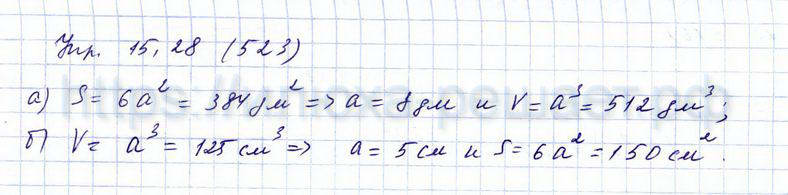 Упр. 15,28 (523)
а) S = 6a² = 384 дм² => a = 8 дм и V = a³ = 512 дм³;
б) V = a³ = 125 см³ => a = 5 см и S = 6a² = 150 см².